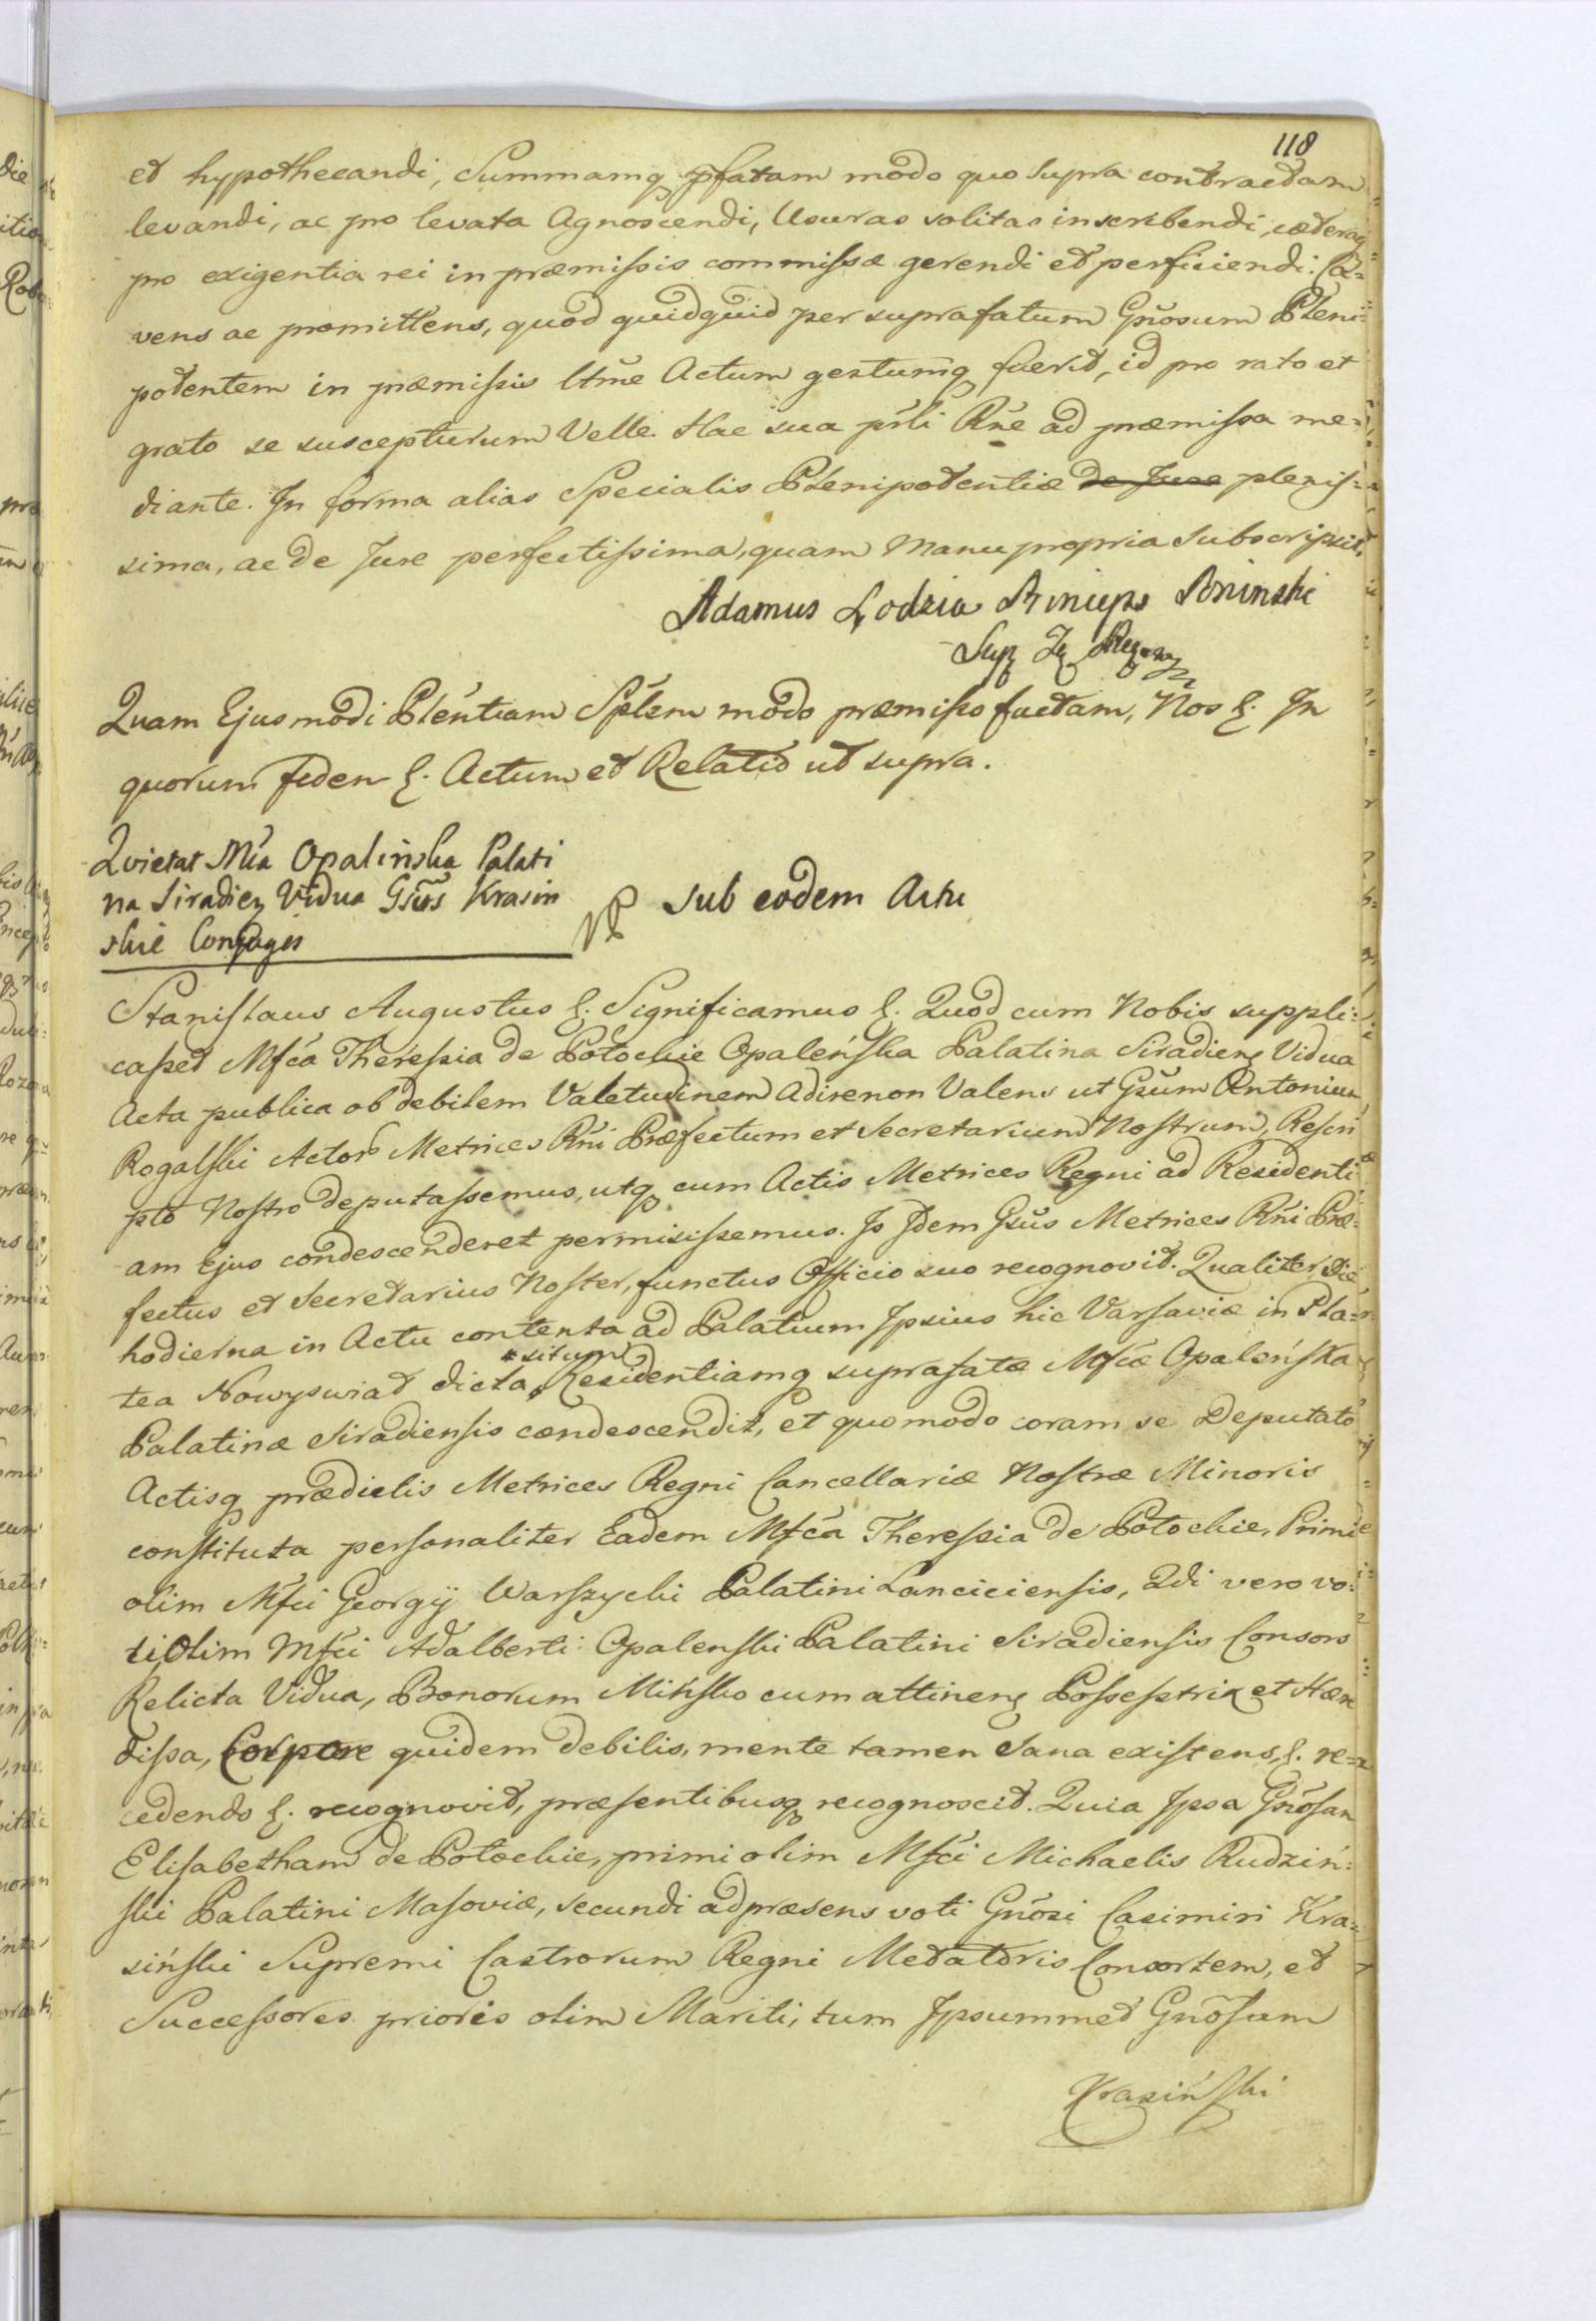 118
et hypothecandi, Summamq pfatam modo quo supra contractam
levandi, ac pro levata Agnoscendi, Usuras solitas inscribendi, cæteraq
pro exigentia rei in præmissis commissæ gerendi et perficiendi. Ca=
vens ac promittens, quod quidquid per suprafatum Gnosum Pleni=
potentem in præmissis ltme Actum gestumq fuerit, id pro rato et
grato se suscepturum Velle. Hac sua prsli Rne ad præmissa me=
diante. In forma alias Specialis Plenipotentiæ de Jure plenis=
sima, ac de Jure perfectissima, quam Manu propria Subscripsit.
Adamus Lodzia Princeps Poninski
Quam Ejusmodi Plentiam Splem modo præmisso factam, Nos &. In
quorum fidem &. Actum et Relatio ut supra.
Qvietat Mca Opalińska Palati
na Siradien Vidua Gsos Krasin
skie Conjuges
sub eodem Actu
Stanislaus Augustus &. Significamus &. Quod cum Nobis suppli=
casset Mfca Theressia de Potockie Opaleńska Palatina Siradien Vidua
Acta publica ob debilem Valetudinem adire non Valens ut Gsum Antonium
Rogalski Actor Metrices Rni Præfectum et Secretarium Nostrum, Rescri
pto Nostro deputassemus, utq cum Actis Metrices Regni ad Residenti
am Ejus condescenderet permisissemus. Is Idem Gsus Metrices Rni Præ=
fectus et Secretarius Noster, functus Officio suo recognovit. Qualiter die
hodierna in Actu contenta ad Palatium Ipsius hic Varsaviæ in Pla=
*situm
tea Nowyswiat dicta * Residentiamq suprafatæ Mfcæ Opaleńska
Palatinæ Siradiensis condescendit, et quomodo coram se Deputato
Actisq prædictis Metrices Regni Cancellariæ Nostræ Minoris
constituta personaliter Eadem Mfca Theressia de Potockie, Primi
olim Mfci Georgij Warszycki Palatini Lanciciensis, 2di vero vo=
ti Olim Mfci Adalberti Opalenski Palatini Siradiensis Consors
Relicta Vidua, Bonorum Mińsko cum attinen Possestrix et Hære
dissa, Corpore quidem debilis, mente tamen Sana existens, &. re=
cedendo &. recognovit, præsentibusq recognoscit. Quia Ipsa Gnosam
Elisabetham de Potockie, primi olim Mfci Michaelis Rudziń=
ski Palatini Masoviæ, secundi ad præsens voti Gnosi Casimiri Kra=
siński Supremi Castrorum Regni Metatoris Consortem, et
Successores prioris olim Mariti, tum Ipsummet Gnosum
Krasiński